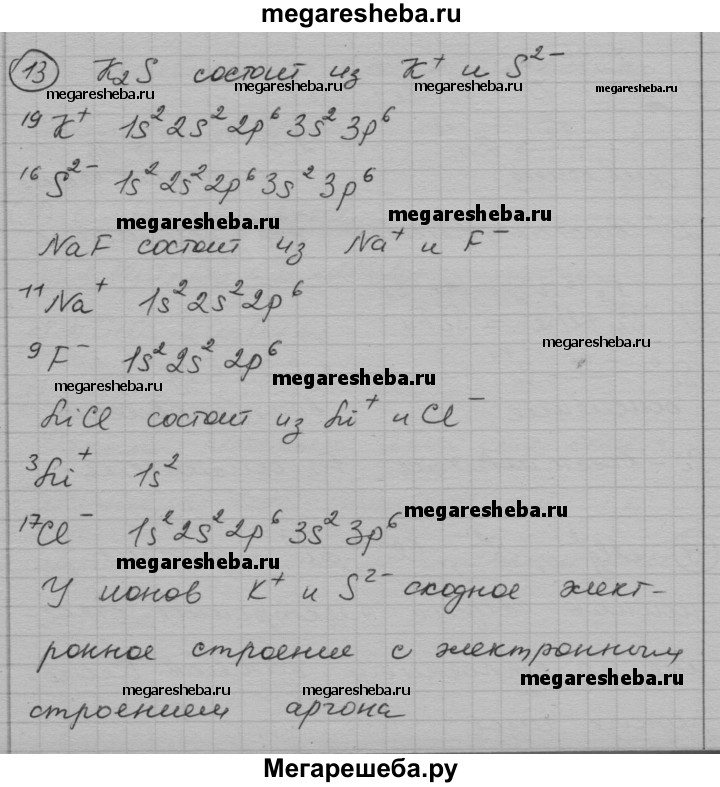 megaresheba.ru
13 K₂S состоит из K⁺ и S²⁻
megaresheba.ru megaresheba.ru megaresheba.ru megaresheba.ru
¹⁹K⁺ 1s²2s²2p⁶3s²3p⁶
¹⁶S²⁻ 1s²2s²2p⁶3s²3p⁶
megaresheba.ru megaresheba.ru
NaF состоит из Na⁺ и F⁻
¹¹Na⁺ 1s²2s²2p⁶
megaresheba.ru
⁹F⁻ 1s²2s²2p⁶
megaresheba.ru megaresheba.ru
LiCl состоит из Li⁺ и Cl⁻
³Li⁺ 1s²
megaresheba.ru
¹⁷Cl⁻ 1s²2s²2p⁶3s²3p⁶
megaresheba.ru
У ионов K⁺ и S²⁻ сходное элект-
ронное строение с электронным
megaresheba.ru megaresheba.ru megaresheba.ru
строением аргона
Мегарешеба.ру